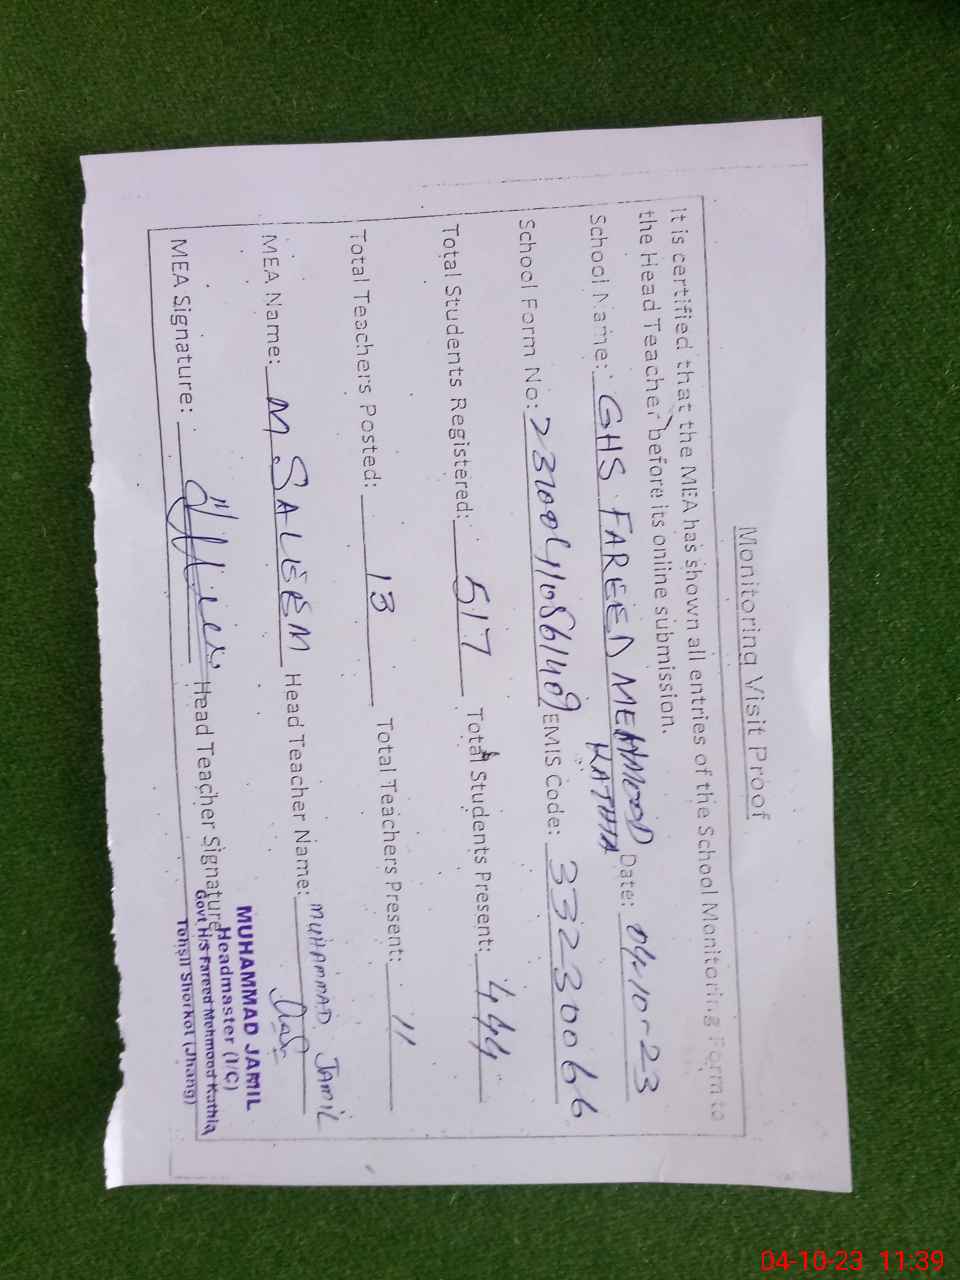 Monitoring Visit Proof
It is certified that the MEA has shown all entries of the School Monitoring Form to
the Head Teacher before its online submission.
School Name: GHS FAREED MEHMOOD Date: 04-10-23
KATHIA
School Form No: EMIS Code: 33230066
Total Students Registered: 517 Total Students Present: 444
Total Teachers Posted: 13 Total Teachers Present: 11
MEA Name: M SALEEM Head Teacher Name: MUHAMMAD JAMIL
MEA Signature: Head Teacher Signature
MUHAMMAD JAMIL
Headmaster (I/C)
Govt H/S Fareed Mehmood Kathia
Tehsil Shorkot (Jhang)
04-10-23 11:39